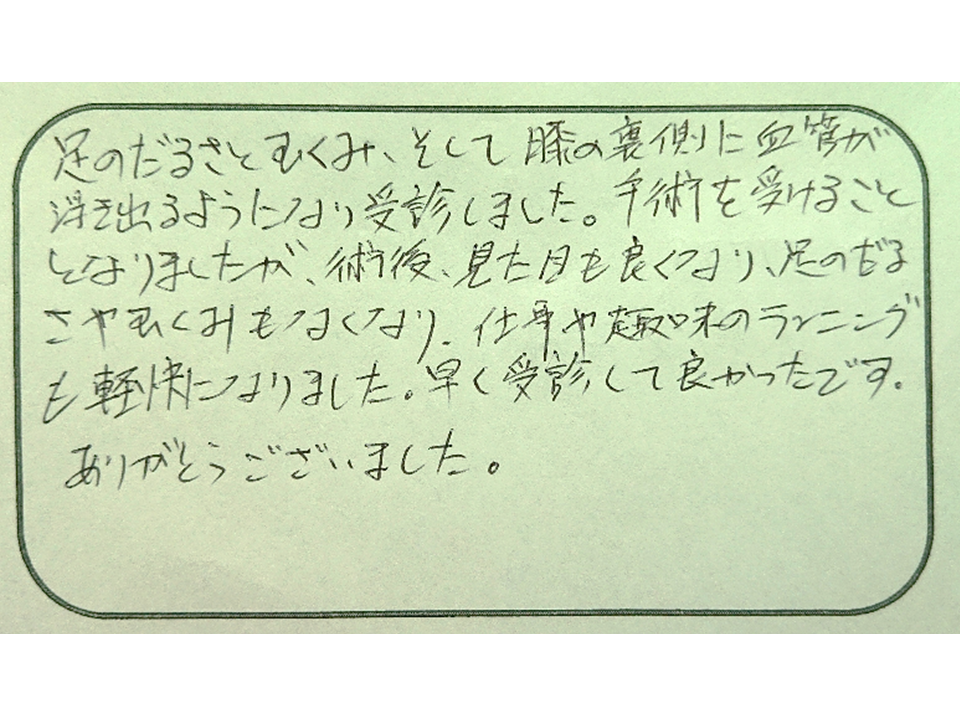 足のだるさとむくみ、そして膝の裏側に血管が
浮き出るようになり受診しました。手術を受けること
となりましたが、術後、見た目も良くなり、足のだる
さやむくみもなくなり、仕事や趣味のランニング
も軽快になりました。早く受診して良かったです。
ありがとうございました。